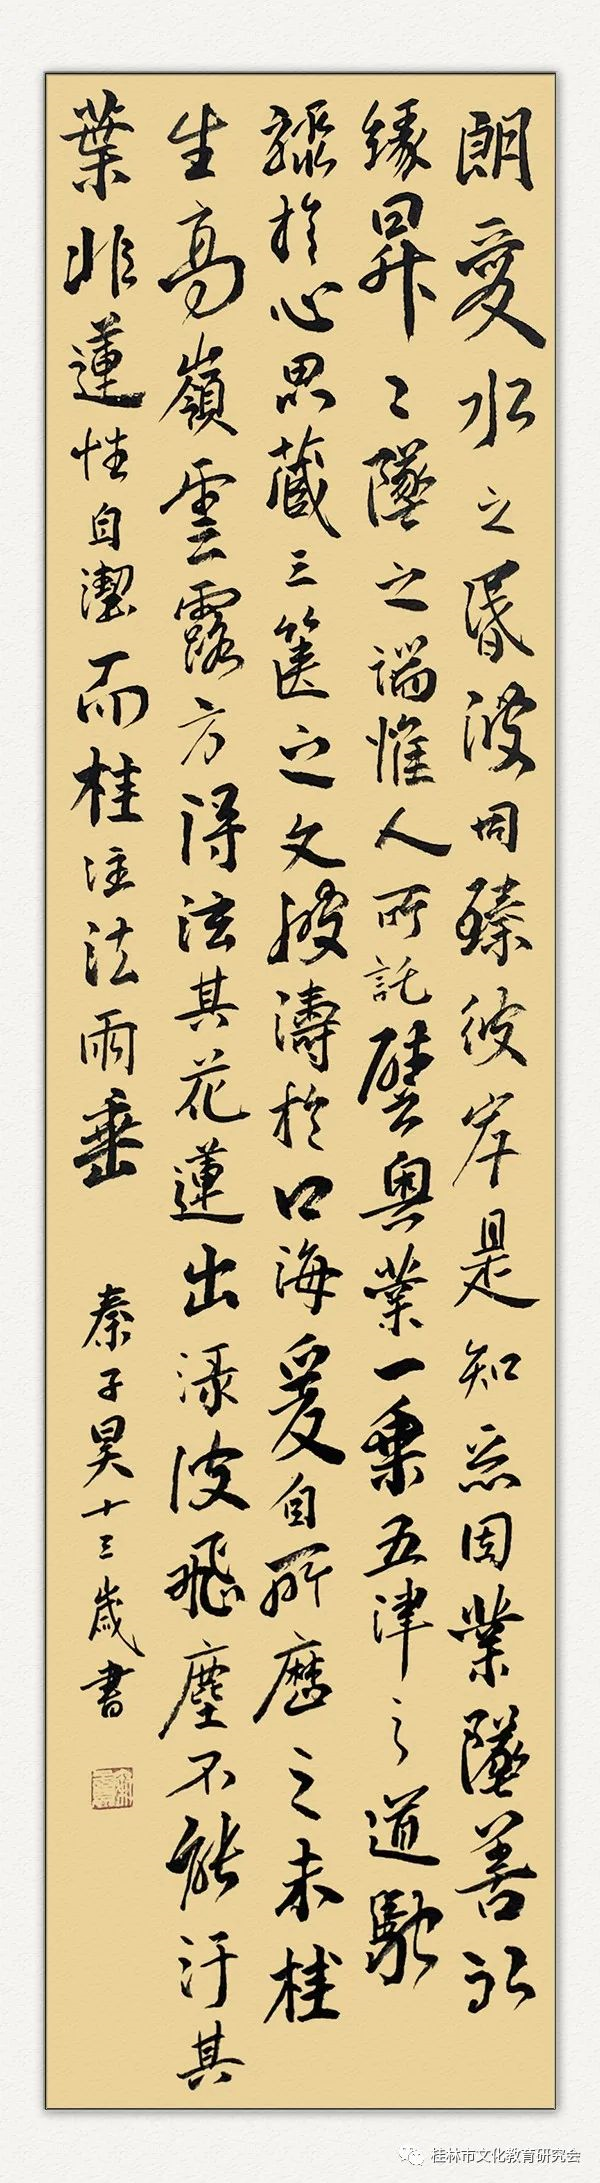 朗愛水之昏波同臻彼岸是知惡因業墜善以
緣昇〻墜之端惟人所託譬奧業一乘五津之道馳
驟於心思藏三篋之文波濤於口海爰自所歷之未桂
生高嶺雲露方得泫其花蓮出渌波飛塵不能汙其
葉非蓮性自潔而桂注法雨垂
秦子昊十三歲書
桂林市文化教育研究会